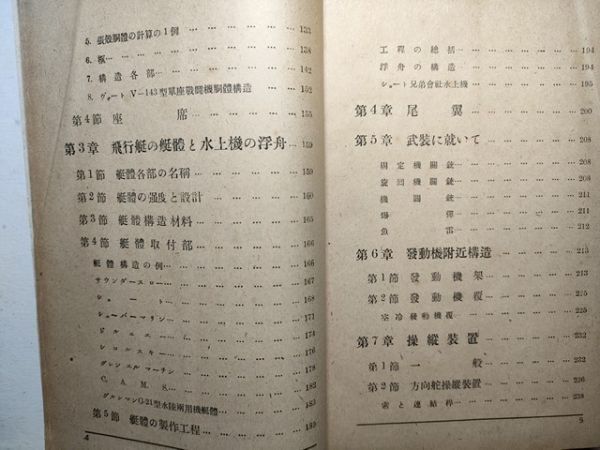 5. 張殼胴體の計算の1例 133
6. 138
7. 構造各部 142
8. ヴォート V-143型單座戰鬪機胴體構造 152
第4節 座席 155
第3章 飛行艇の艇體と水上機の浮舟 159
第1節 艇體各部の名稱 159
第2節 艇體の强度と設計 160
第3節 艇體構造材料 165
第4節 艇體取付部 166
艇體構造の例 166
サウンダースロー 167
ショート 168
シューパーマリン 171
ドルニエ 174
シコルスキー 176
グレン エル マーチン 178
C. A. M. S. 182
グルンマンG-21型水陸兩用機艇體 183
第5節 艇體の製作工程
4
工程の總括 194
浮舟の構造 194
ショート兄弟會社水上機 195
第4章 尾翼 200
第5章 武裝に就いて 208
固定機關銃 208
旋回機關銃 208
機關銃 211
爆彈 211
魚雷
第6章 發動機附近構造 213
第1節 發動機架 213
第2節 發動機覆 225
空冷發動機覆 225
第7章 操縱裝置 232
第1節 一般 232
第2節 方向舵操縱裝置 236
索と連結桿 238
5